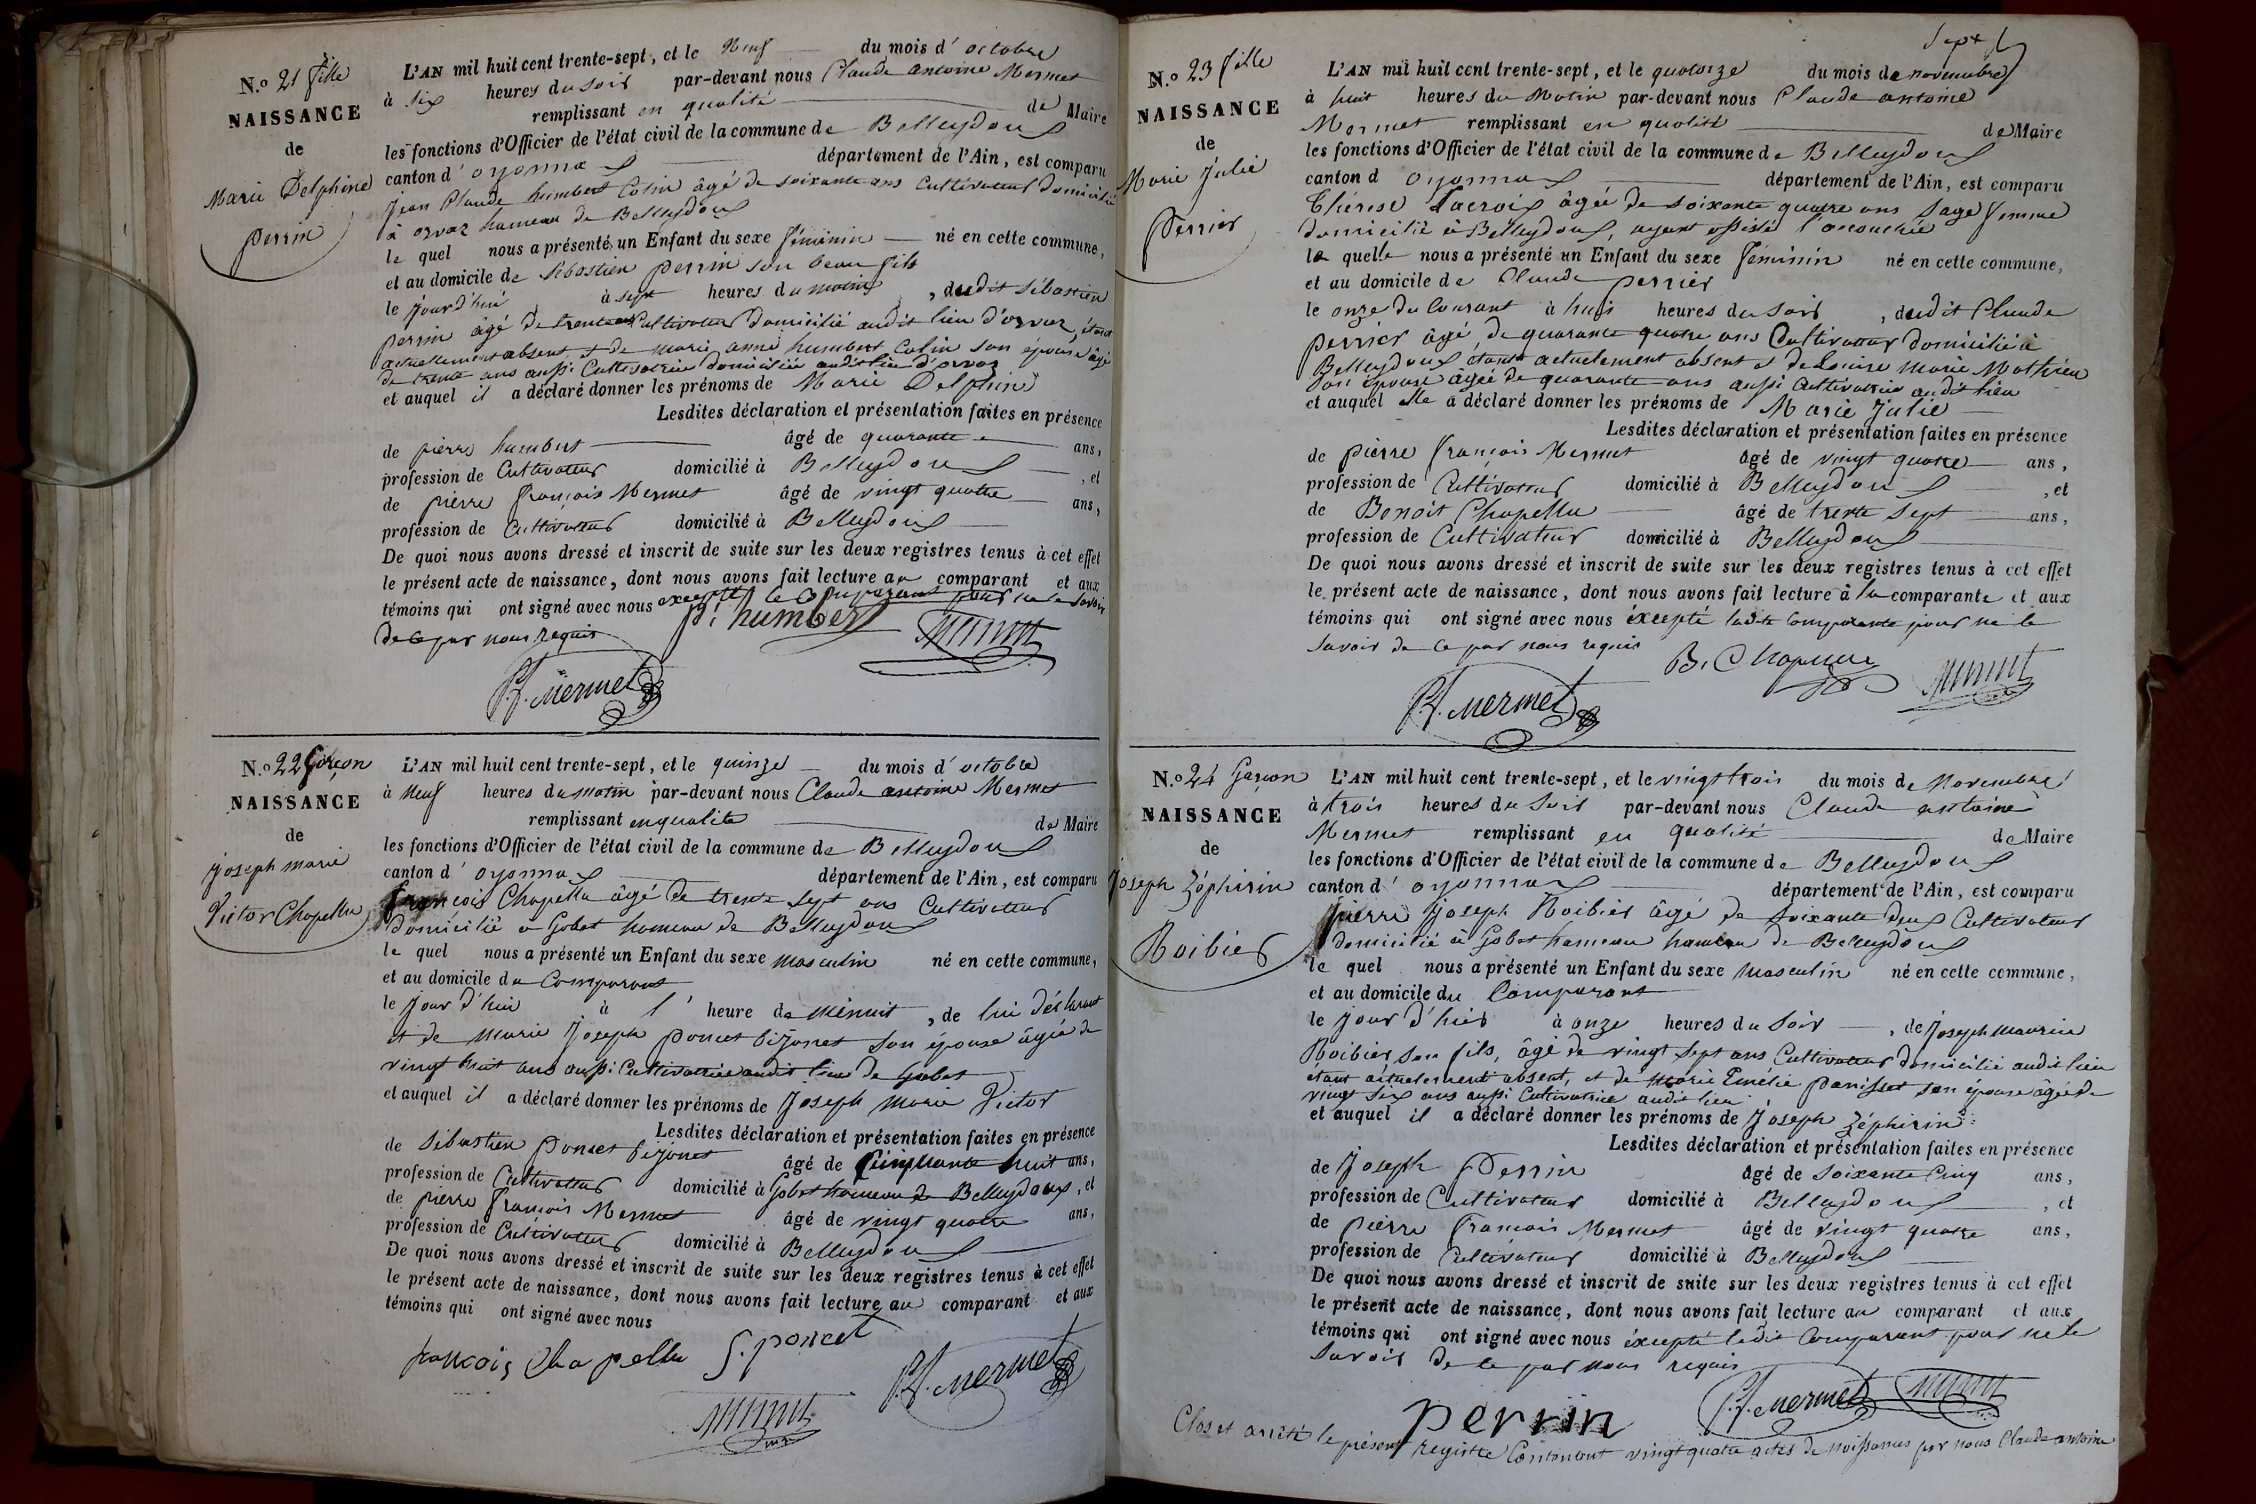 N.º 21 fille
NAISSANCE
de
Marie Delphine
perrin
L'AN mil huit cent trente-sept, et le Neuf du mois d'octobre
à six heures du soir par-devant nous Claude antoine Mermet
remplissant en qualité de Maire
les fonctions d'Officier de l'état civil de la commune de Belleydoux
canton d'oyonnax département de l'Ain, est comparu
Jean Claude humbert Colin âgé de soixante ans Cultivateur domicilié
à orvaz hameau de Belleydoux
le quel nous a présenté un Enfant du sexe féminin né en cette commune,
et au domicile de Sébastien perrin son beau fils
le jourd'hui à sept heures du matin, dudit Sébastien
perrin âgé de trente ans Cultivateur domicilié audit lieu d'orvaz, étant
actuellement absent, et de marie anne humbert Colin son épouse âgée
de trente ans aussi Cultivatrice domiciliée audit lieu d'orvaz
et auquel il a déclaré donner les prénoms de Marie Delphine
Lesdites déclaration et présentation faites en présence
de pierre humbert âgé de quarante ans,
profession de Cultivateur domicilié à Belleydoux, et
de pierre françois Mermet âgé de vingt quatre ans,
profession de Cultivateur domicilié à Belleydoux
De quoi nous avons dressé et inscrit de suite sur les deux registres tenus à cet effet
le présent acte de naissance, dont nous avons fait lecture au comparant et aux
témoins qui ont signé avec nous excepté le Comparant pour ne le savoir
de ce par nous requis
pi humbert
Mermet
P.f. Mermet
N.º 22 Garçon
NAISSANCE
de
joseph marie
Victor Chapellu
L'AN mil huit cent trente-sept, et le quinze du mois d'octobre
à Neuf heures du matin par-devant nous Claude antoine Mermet
remplissant en qualité de Maire
les fonctions d'Officier de l'état civil de la commune de Belleydoux
canton d'oyonnax département de l'Ain, est comparu
françois Chapellu âgé de trente sept ans Cultivateur
domicilié à Gobet hameau de Belleydoux
le quel nous a présenté un Enfant du sexe masculin né en cette commune,
et au domicile du Comparant
le jour d'hui à l'heure de minuit, de lui déclarant
et de marie joseph poncet bijonet son épouse âgée de
vingt huit ans aussi Cultivatrice audit lieu de Gobet
et auquel il a déclaré donner les prénoms de joseph marie Victor
Lesdites déclaration et présentation faites en présence
de Sébastien poncet bijonet âgé de Cinquante huit ans,
profession de Cultivateur domicilié à Gobet hameau de Belleydoux, et
de pierre françois Mermet âgé de vingt quatre ans,
profession de Cultivateur domicilié à Belleydoux
De quoi nous avons dressé et inscrit de suite sur les deux registres tenus à cet effet
le présent acte de naissance, dont nous avons fait lecture au comparant et aux
témoins qui ont signé avec nous
françois Chapellu S. poncet
P.f. Mermet
Mermet
Sept
N.º 23 fille
NAISSANCE
de
Marie Julie
Perrier
L'AN mil huit cent trente-sept, et le quatorze du mois de novembre
à huit heures du Matin par-devant nous Claude antoine
Mermet remplissant en qualité de Maire
les fonctions d'Officier de l'état civil de la commune de Belleydoux
canton d oyonnax département de l'Ain, est comparu
Thérèse Lacroix âgée de soixante quatre ans sage femme
domicilié à Belleydoux, ayant assisté l'accouchée
la quelle nous a présenté un Enfant du sexe féminin né en cette commune,
et au domicile de Claude perrier
le onze du Courant à huit heures du soir, dudit Claude
perrier âgé de quarante quatre ans Cultivateur domicilié à
Belleydoux étant actuelement absent et de Louise marie Mathieu
son épouse âgée de quarante ans aussi Cultivatrice audit lieu
et auquel elle a déclaré donner les prénoms de Marie Julie
Lesdites déclaration et présentation faites en présence
de pierre françois Mermet âgé de vingt quatre ans,
profession de Cultivateur domicilié à Belleydoux, et
de Benoit Chapellu âgé de trente sept ans,
profession de Cultivateur domicilié à Belleydoux
De quoi nous avons dressé et inscrit de suite sur les deux registres tenus à cet effet
le présent acte de naissance, dont nous avons fait lecture à la comparante et aux
témoins qui ont signé avec nous excepté ladite Comparante pour ne le
savoir de ce par nous requis
B. Chapellu
Mermet
P.f. Mermet
N.º 24 Garçon
NAISSANCE
de
Joseph Zéphirin
Roibier
L'AN mil huit cent trente-sept, et le vingt trois du mois de Novembre
à trois heures du soir par-devant nous Claude antoine
Mermet remplissant en qualité de Maire
les fonctions d'Officier de l'état civil de la commune de Belleydoux
canton d'oyonnax département de l'Ain, est comparu
pierre joseph Roibier âgé de soixante deux Cultivateur
domicilié à Gobet hameau hameau de Belleydoux
le quel nous a présenté un Enfant du sexe masculin né en cette commune,
et au domicile du Comparant
le jour d'hier à onze heures du soir, de joseph maurice
Roibier son fils, âgé de vingt sept ans Cultivateur domicilié audit lieu
étant actuelement absent, et de marie Emélie panisset son épouse âgée de
vingt six ans aussi Cultivatrice audit lieu
et auquel il a déclaré donner les prénoms de Joseph Zéphirin
Lesdites déclaration et présentation faites en présence
de Joseph Perrin âgé de soixante Cinq ans,
profession de Cultivateur domicilié à Belleydoux, et
de pierre francois Mermet âgé de vingt quatre ans,
profession de Cultivateur domicilié à Belleydoux
De quoi nous avons dressé et inscrit de suite sur les deux registres tenus à cet effet
le présent acte de naissance, dont nous avons fait lecture au comparant et aux
témoins qui ont signé avec nous excepté ledit Comparant pour ne le
savoir de ce par nous requis
perrin
P.f. Mermet
Mermet
Clos et arrêté le présent registre Contenant vingt quatre actes de naissances par nous Claude antoine